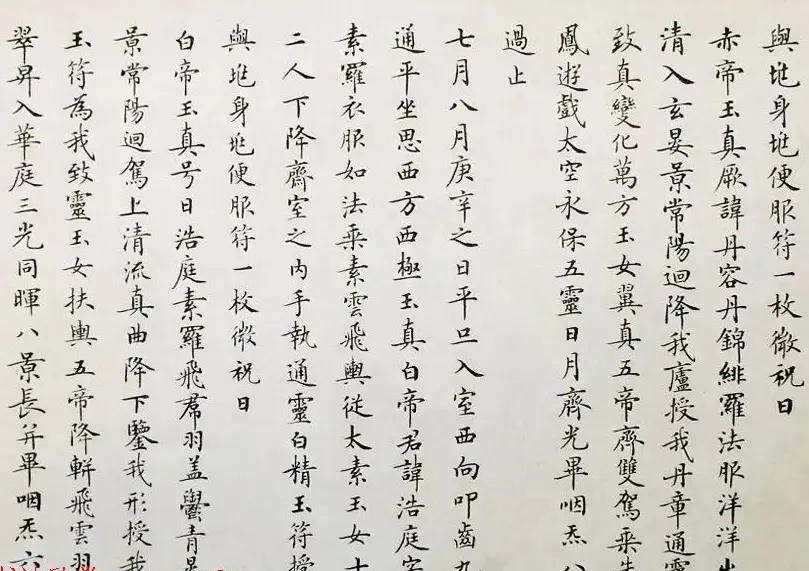 與兆身兆便服符一枚微祝曰
赤帝玉真厥諱丹容丹錦緋羅法服洋洋出
清入玄晏景常陽迴降我廬授我丹章通靈
致真變化萬方玉女翼真五帝齊雙駕乘朱
鳳遊戲太空永保五靈日月齊光畢咽炁八
過止
七月八月庚辛之日平旦入室西向叩齒九
通平坐思西方西極玉真白帝君諱浩庭字
素羅衣服如法乘素雲飛輿從太素玉女十
二人下降齋室之內手執通靈白精玉符授
與兆身兆便服符一枚微祝曰
白帝玉真号曰浩庭素羅飛帬羽盖鬱青晨
景常陽迴駕上清流真曲降下鑒我形授我
玉符為我致靈玉女扶輿五帝降軿飛雲羽
翠昇入華庭三光同暉八景長并畢咽炁六